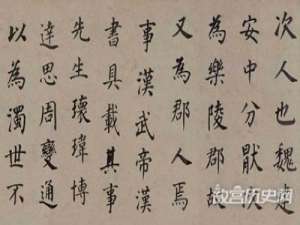 次人也魏建
安中分厭次
為樂陵郡故
又為郡人焉
事漢武帝漢
書具載其事
先生瓌瑋博
達思周變通
以為濁世不
故宫历史网